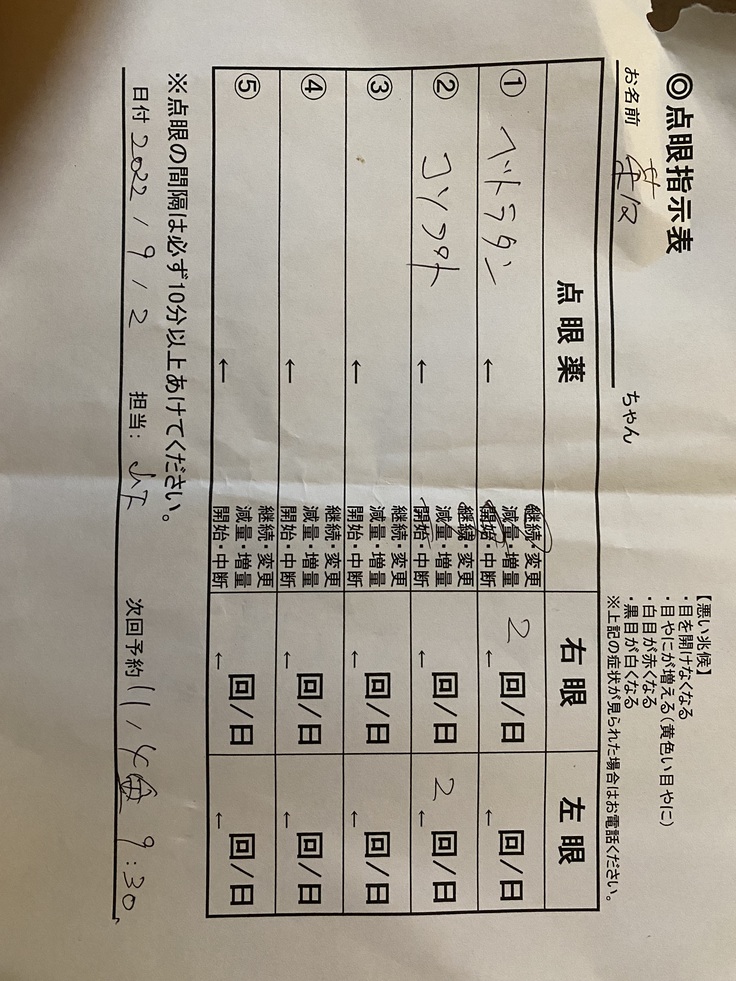 ◎点眼指示表
お名前 ちゃん
【悪い兆候】
・目を開けなくなる
・目やにが増える(黄色い目やに)
・白目が赤くなる
・黒目が白くなる
※上記の症状が見られた場合はお電話ください。
点眼薬 右眼 左眼
① ベトラタン ← 継続・変更 減量・増量 開始・中断 2 回/日 ← 回/日 ←
② コソプト ← 継続・変更 減量・増量 開始・中断 回/日 ← 2 回/日 ←
③ ← 継続・変更 減量・増量 開始・中断 回/日 ← 回/日 ←
④ ← 継続・変更 減量・増量 開始・中断 回/日 ← 回/日 ←
⑤ ← 継続・変更 減量・増量 開始・中断 回/日 ← 回/日 ←
※点眼の間隔は必ず10分以上あけてください。
日付 2022/9/2 担当: 山下 次回予約 11/4 金 9:30